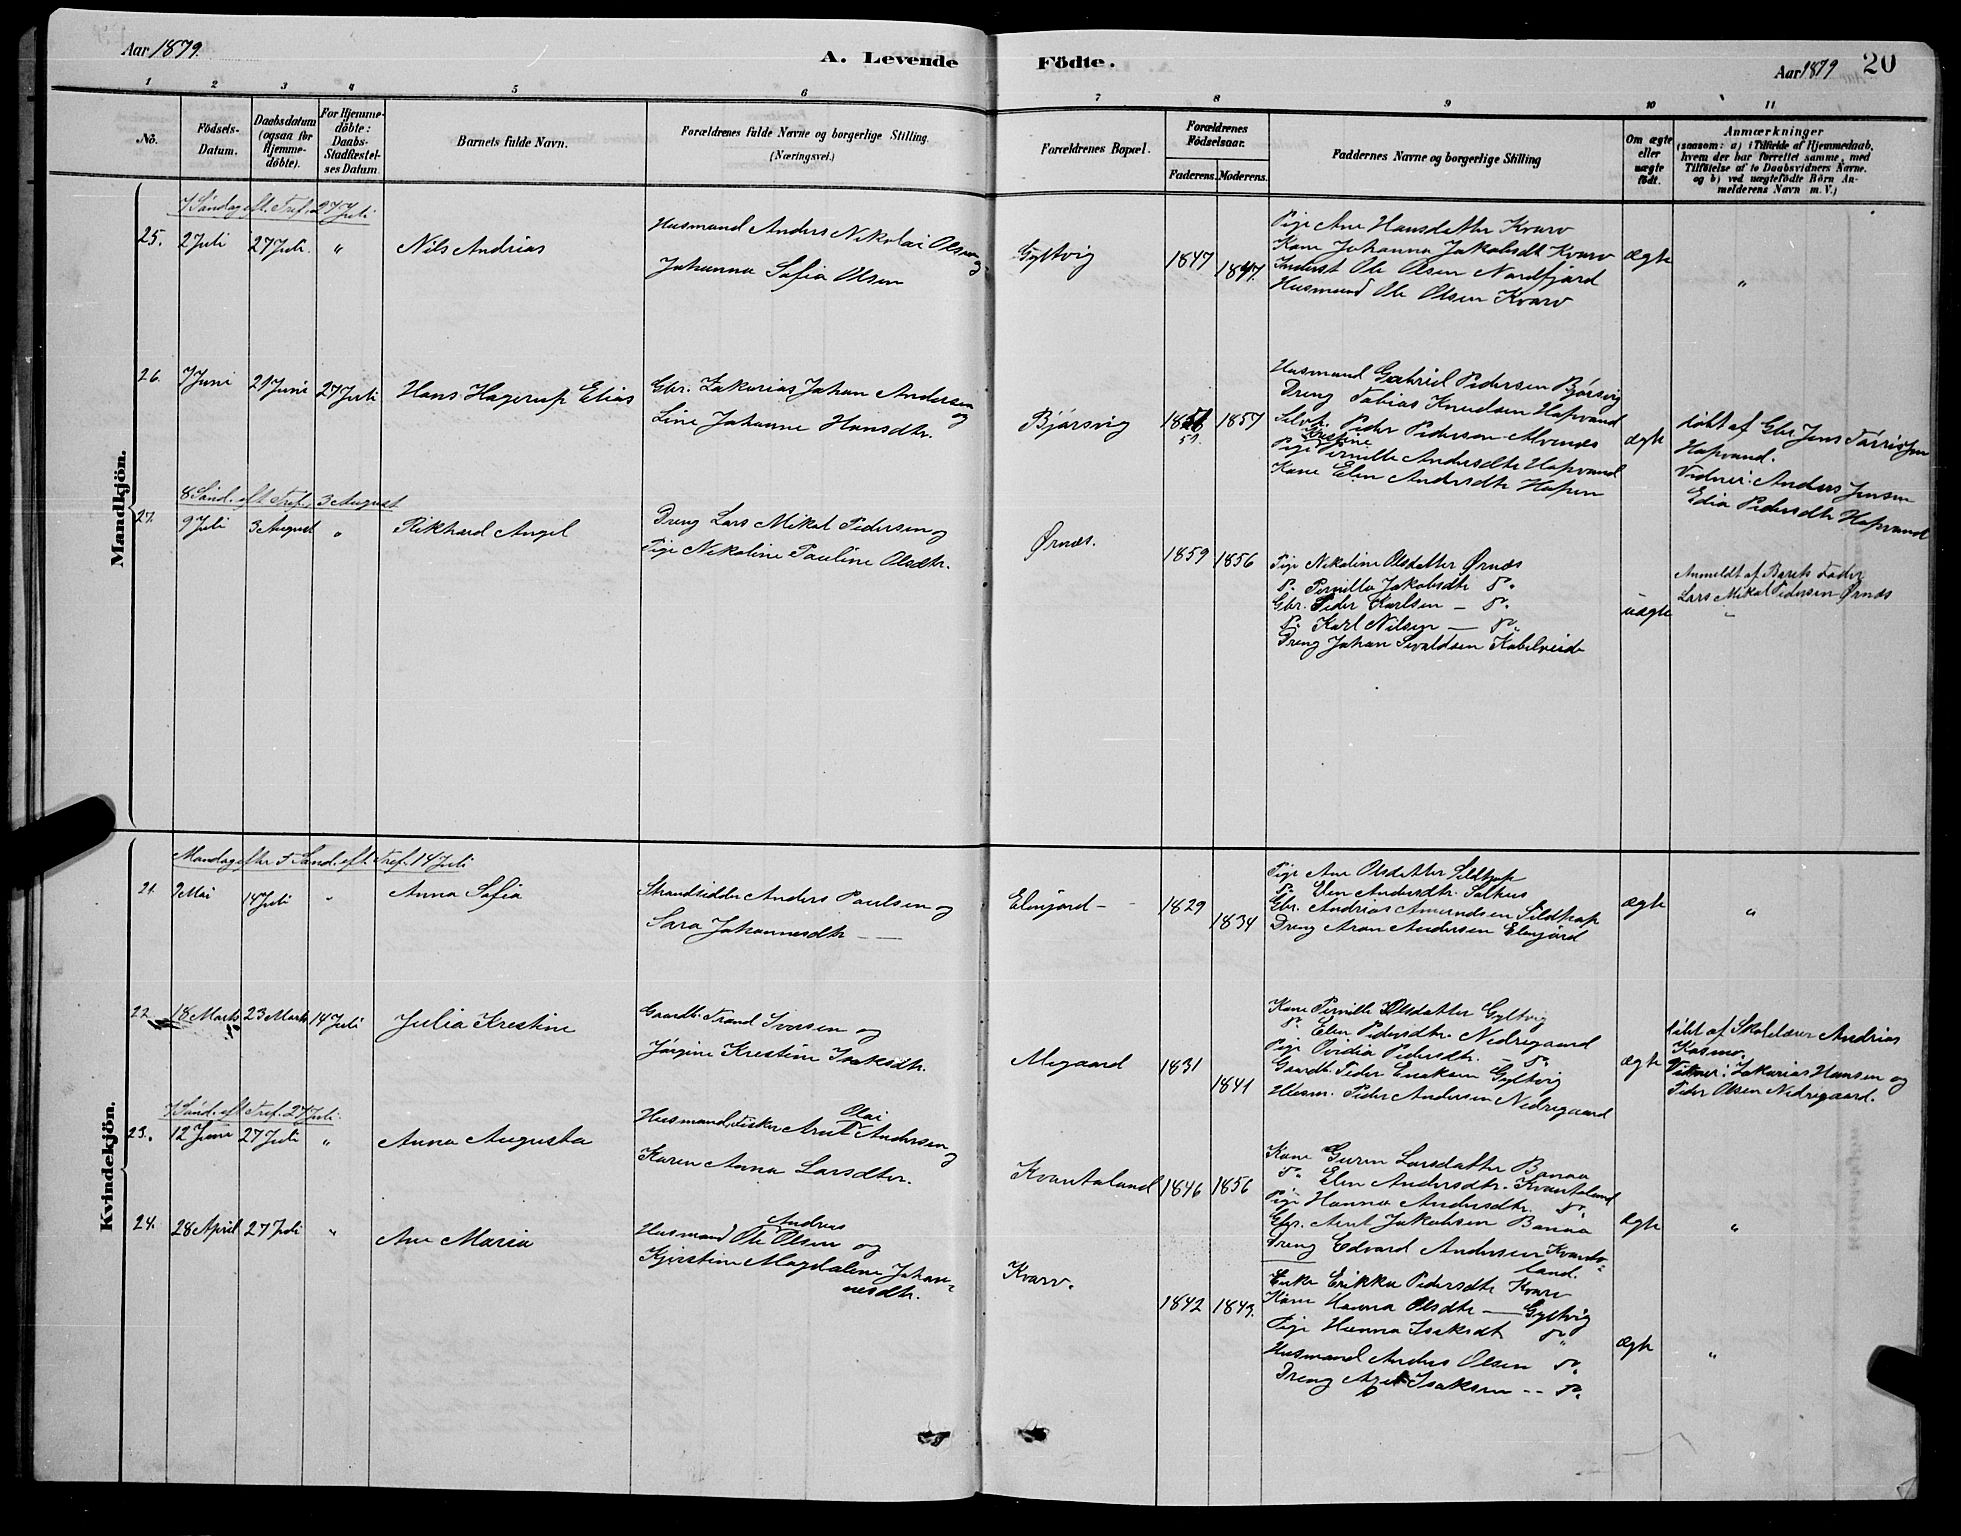 Aar 1879.
A. Levende Födte.
Aar 1879
20
1 2 3 4 5 6 7 8 9 10 11
No.
Födsels-
Datum.
Daabsdatum
(ogsaa for
Hjemme-
döbte).
For Hjemme-
döbte:
Daabs-
Stadfæstel-
ses Datum.
Barnets fulde Navn.
Forældrenes fulde Navne og borgerlige Stilling.
(Næringsvei.)
Forældrenes Bopæl.
Forældrenes
Födselsaar.
Faderens.
Moderens.
Faddernes Navne og borgerlige Stilling
Om ægte
eller
uægte
födt.
Anmærkninger
(saasom: a) i Tilfælde af Hjemmedaab,
hvem der har forrettet samme, med
Tilföielse af to Daabsvidners Navne.
og b) ved uægtefödte Börn An-
melderens Navn m. V.)
Mandkjön.
7 Søndag eft. Tref. 27 Juli
25. 2 Juli 27 Juli. "
Nils Andrias
Husmand Anders Nikolai Olsen og
Johanna Sofia Olsen
Gyltvig
1847
1847.
Pige Ane Hansdatter Kvarv
Kone Johanna Jakobsdt Kvarv
Inderst Ole Olsen Nordfjord
Husmand Ole Olsen Kvarv
ægte
"
26. 7 Juni 21 Juni 27 Juli
Hans Hagerup Elias
Gbr. Zakarias Johan Andersen og
Line Johanne Hansdtr.
Bjørsvig
51.
1857
Husmand Gabriel Pedersen Bjørsvig
Dreng Tobias Knudsen Hopvand
Selve. Peder Pedersen Alvenes
Kristine
Pige Pernille Andersdtr Hopvand
Kone Elen Andersdtr Hopen
ægte
døbt af Gbr. Jens Tørrisen
Hopvand.
Vidner: Anders Jensen
Edia Pedersdtr Hopvand
8 Sønd. eft. Tref. 3 August
27. 9 Juli 3 August "
Rikhard Angel
Dreng Lars Mikal Pedersen og
Pige Nikoline Pauline Olsdtr.
Ørnæs.
1859 1856
Pige Nikoline Olsdatter Ørnæs
do. Pernilla Jakobsdtr do.
Gbr. Peder Karlsen — do.
do. Karl Nilsen — do.
Dreng Johan Sivaldsen Kobelveid
uægte
Anmeldt af Barnets Fader
Lars Mikal Pedersen Ørnæs
"
Kvindekjön.
Mandag efter 5 Sønd. eft. Tref. 14 Juli
21. 9 Mai 14 Juli "
Anna Sofia
Strandsidder Anders Paulsen og
Sara Johannesdtr —
Elvejord -
1829
1834
Pige Ane Olsdatter Sildhop
do. Elen Andersdtr.
Gbr. Andrias Amundsen Sildhop
Dreng Aron Andersen Elvejord
ægte
"
22. 18 Marts 23 Marts 14 Juli
Julia Krestine
Gaardbr. Trond Ivarsen og
Jørgine Krestine Isaksdtr.
Megaard
1831
1841
Kone Pernille Olsdatter Gyltvig
do. Elen Pedersdtr. Nedregaard
Pige Ovidia Pedersdtr. — do.
Gaardb. Peder Enoksen Gyltvig
Husm. Peder Andersen Nedregaard
ægte
døbt af Skolelærer Andrias
Kosmo.
Vidner: Zakarias Hansen og
Peder Olsen Nedregaard.
7 Sønd. eft. Tref. 27 Juli.
23. 12 Juni 27 Juli "
Anna Augusta
Olai
Husmand, Fisker Arnt Andersen og
Karen Anna Larsdtr.
Kvantoland
1846 1856
Kone Guren Larsdatter Bonaa
do. Elen Andersdtr. Kvantoland
Pige Hanna Andersdtr. do.
Gbr. Arnt Jakobsen Bonaa
Dreng Edvard Andersen Kvanto-
land.
ægte
"
24. 28 April 27 Juli "
Ane Maria
Andreas
Husmand Ole Olsen og
Kjerstine Magdalena Johan-
nesdtr.
Kvarv.
1842 1843.
Enke Erikka Pedersdtr Kvarv
Kone Hanna Olsdtr — Gyltvig
Pige Hanna Isaksdt do.
Husmand Anders Olsen do.
Dreng Isaksen -- do.
ægte
"